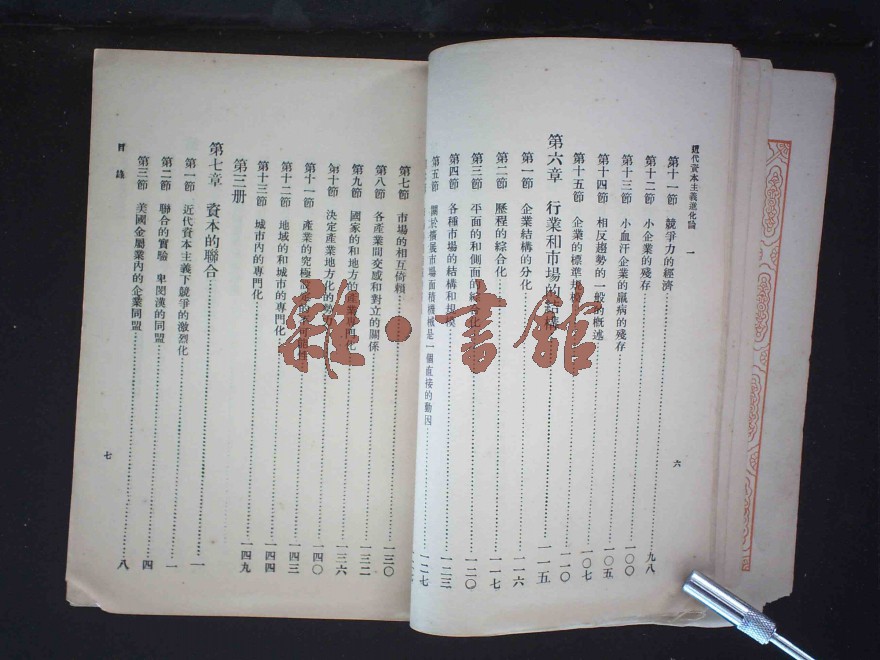 近代資本主義進化論 一
第十一節 競爭力的經濟 九八
第十二節 小企業的殘存 一〇〇
第十三節 小血汗企業的羸病的殘存 一〇五
第十四節 相反趨勢的一般的概述 一〇七
第十五節 企業的標準規模 一一〇
第六章 行業和市場的結構 一一五
第一節 企業結構的分化 一一六
第二節 歷程的綜合化 一一七
第三節 平面的和側面的 一二〇
第四節 各種市場的結構和規模 一二三
第五節 關於擴展市場面積機械是一個直接的動因 一二七
六
第七節 市場的相互倚賴 一三〇
第八節 各產業間交感和對立的關係 一三二
第九節 國家的和地方的產業專門化 一三六
第十節 決定產業地方化的勢力
第十一節 產業的究極 一四〇
第十二節 地域的和城市的專門化 一四三
第十三節 城市內的專門化 一四四
第二册 一四九
第七章 資本的聯合 一
第一節 近代資本主義下競爭的激烈化 一
第二節 聯合的實驗 卑閔漢的同盟 四
第三節 美國金屬業內的企業同盟 八
目錄
七
雜·書館